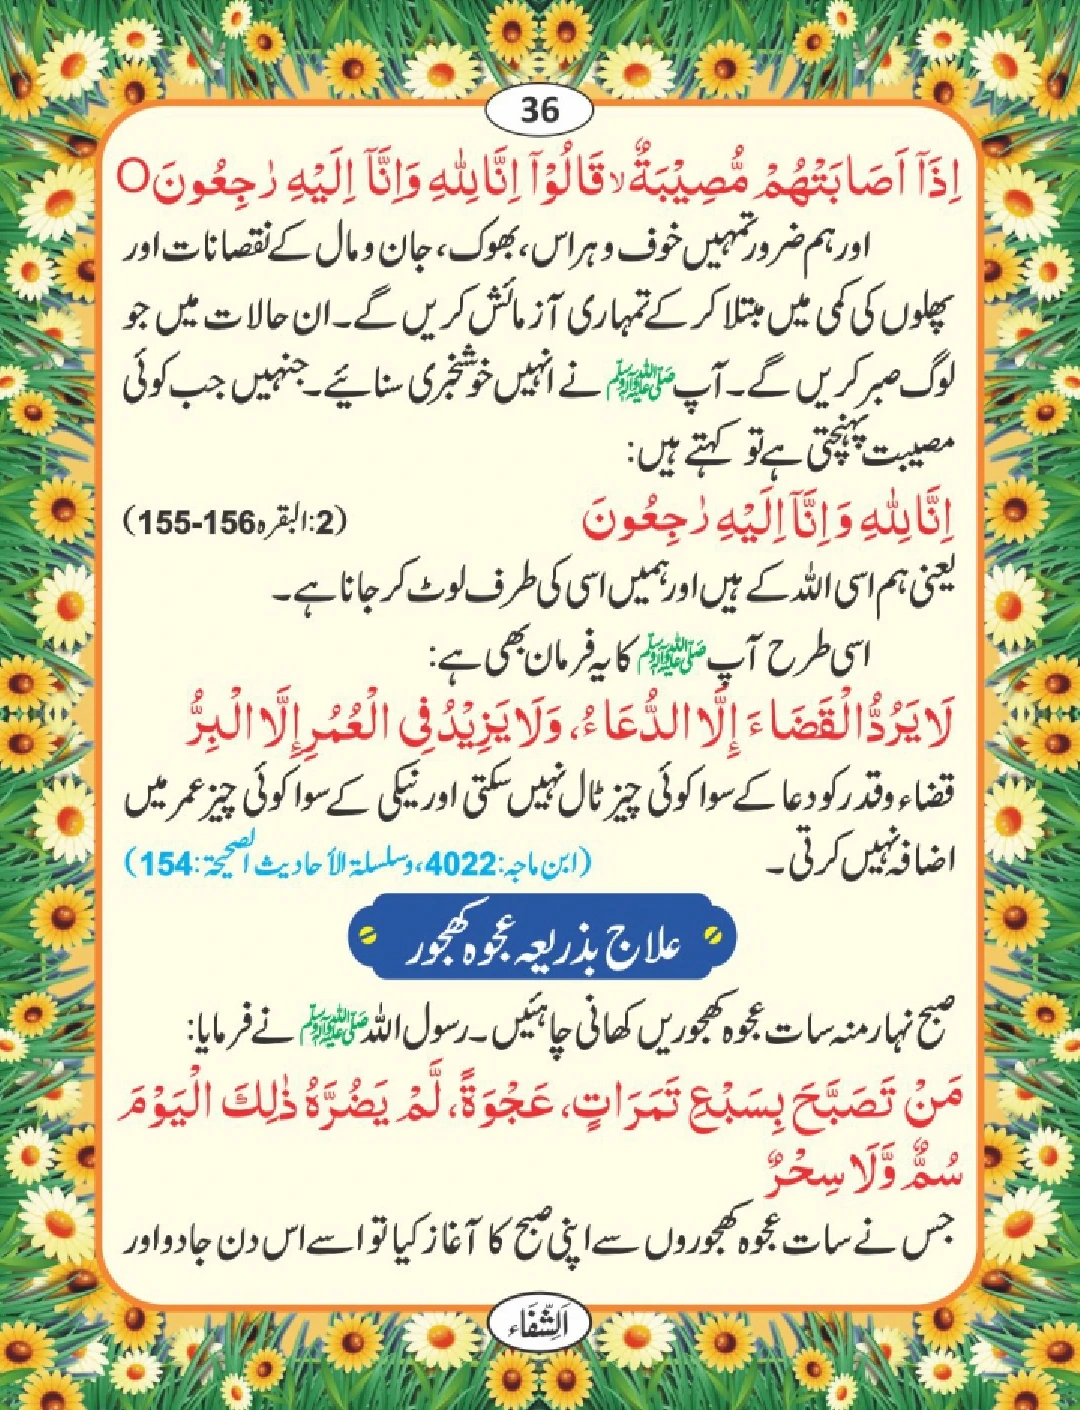 36
اِذَآ اَصَابَتْهُمْ مُّصِيْبَةٌ ۙ قَالُوْٓا اِنَّا لِلّٰهِ وَاِنَّآ اِلَيْهِ رٰجِعُونَ O
اور ہم ضرور تمہیں خوف و ہراس، بھوک، جان و مال کے نقصانات اور
پھلوں کی کمی میں مبتلا کر کے تمہاری آزمائش کریں گے۔ ان حالات میں جو
لوگ صبر کریں گے۔ آپ ﷺ نے انہیں خوشخبری سنائیے۔ جنہیں جب کوئی
مصیبت پہنچتی ہے تو کہتے ہیں:
اِنَّا لِلّٰهِ وَاِنَّآ اِلَيْهِ رٰجِعُونَ (2:البقرہ 155-156)
یعنی ہم اسی اللہ کے ہیں اور ہمیں اسی کی طرف لوٹ کر جانا ہے۔
اسی طرح آپ ﷺ کا یہ فرمان بھی ہے:
لَا يَرُدُّ الْقَضَاءَ إِلَّا الدُّعَاءُ، وَلَا يَزِيْدُ فِي الْعُمُرِ إِلَّا الْبِرُّ
قضاء و قدر کو دعا کے سوا کوئی چیز ٹال نہیں سکتی اور نیکی کے سوا کوئی چیز عمر میں
اضافہ نہیں کرتی۔ (ابن ماجہ: 4022، وسلسلة الأحاديث الصحيحة: 154)
علاج بذریعہ عجوہ کھجور
صبح نہار منہ سات عجوہ کھجوریں کھانی چاہئیں۔ رسول اللہ ﷺ نے فرمایا:
مَنْ تَصَبَّحَ بِسَبْعِ تَمَرَاتٍ، عَجْوَةً، لَّمْ يَضُرَّهُ ذٰلِكَ الْيَوْمَ
سُمٌّ وَّلَا سِحْرٌ
جس نے سات عجوہ کھجوروں سے اپنی صبح کا آغاز کیا تو اسے اس دن جادو اور
اَلشِّفَاء